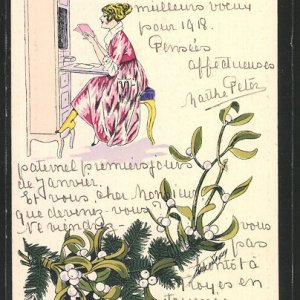 meilleurs voeux
pour 1918.
Pensées
affectueuses
Marthe Peter
paternel premiers jours
de Janvier.
Et vous, cher Monsieur
que devenez-vous?
vous
pas
bientôt à
en